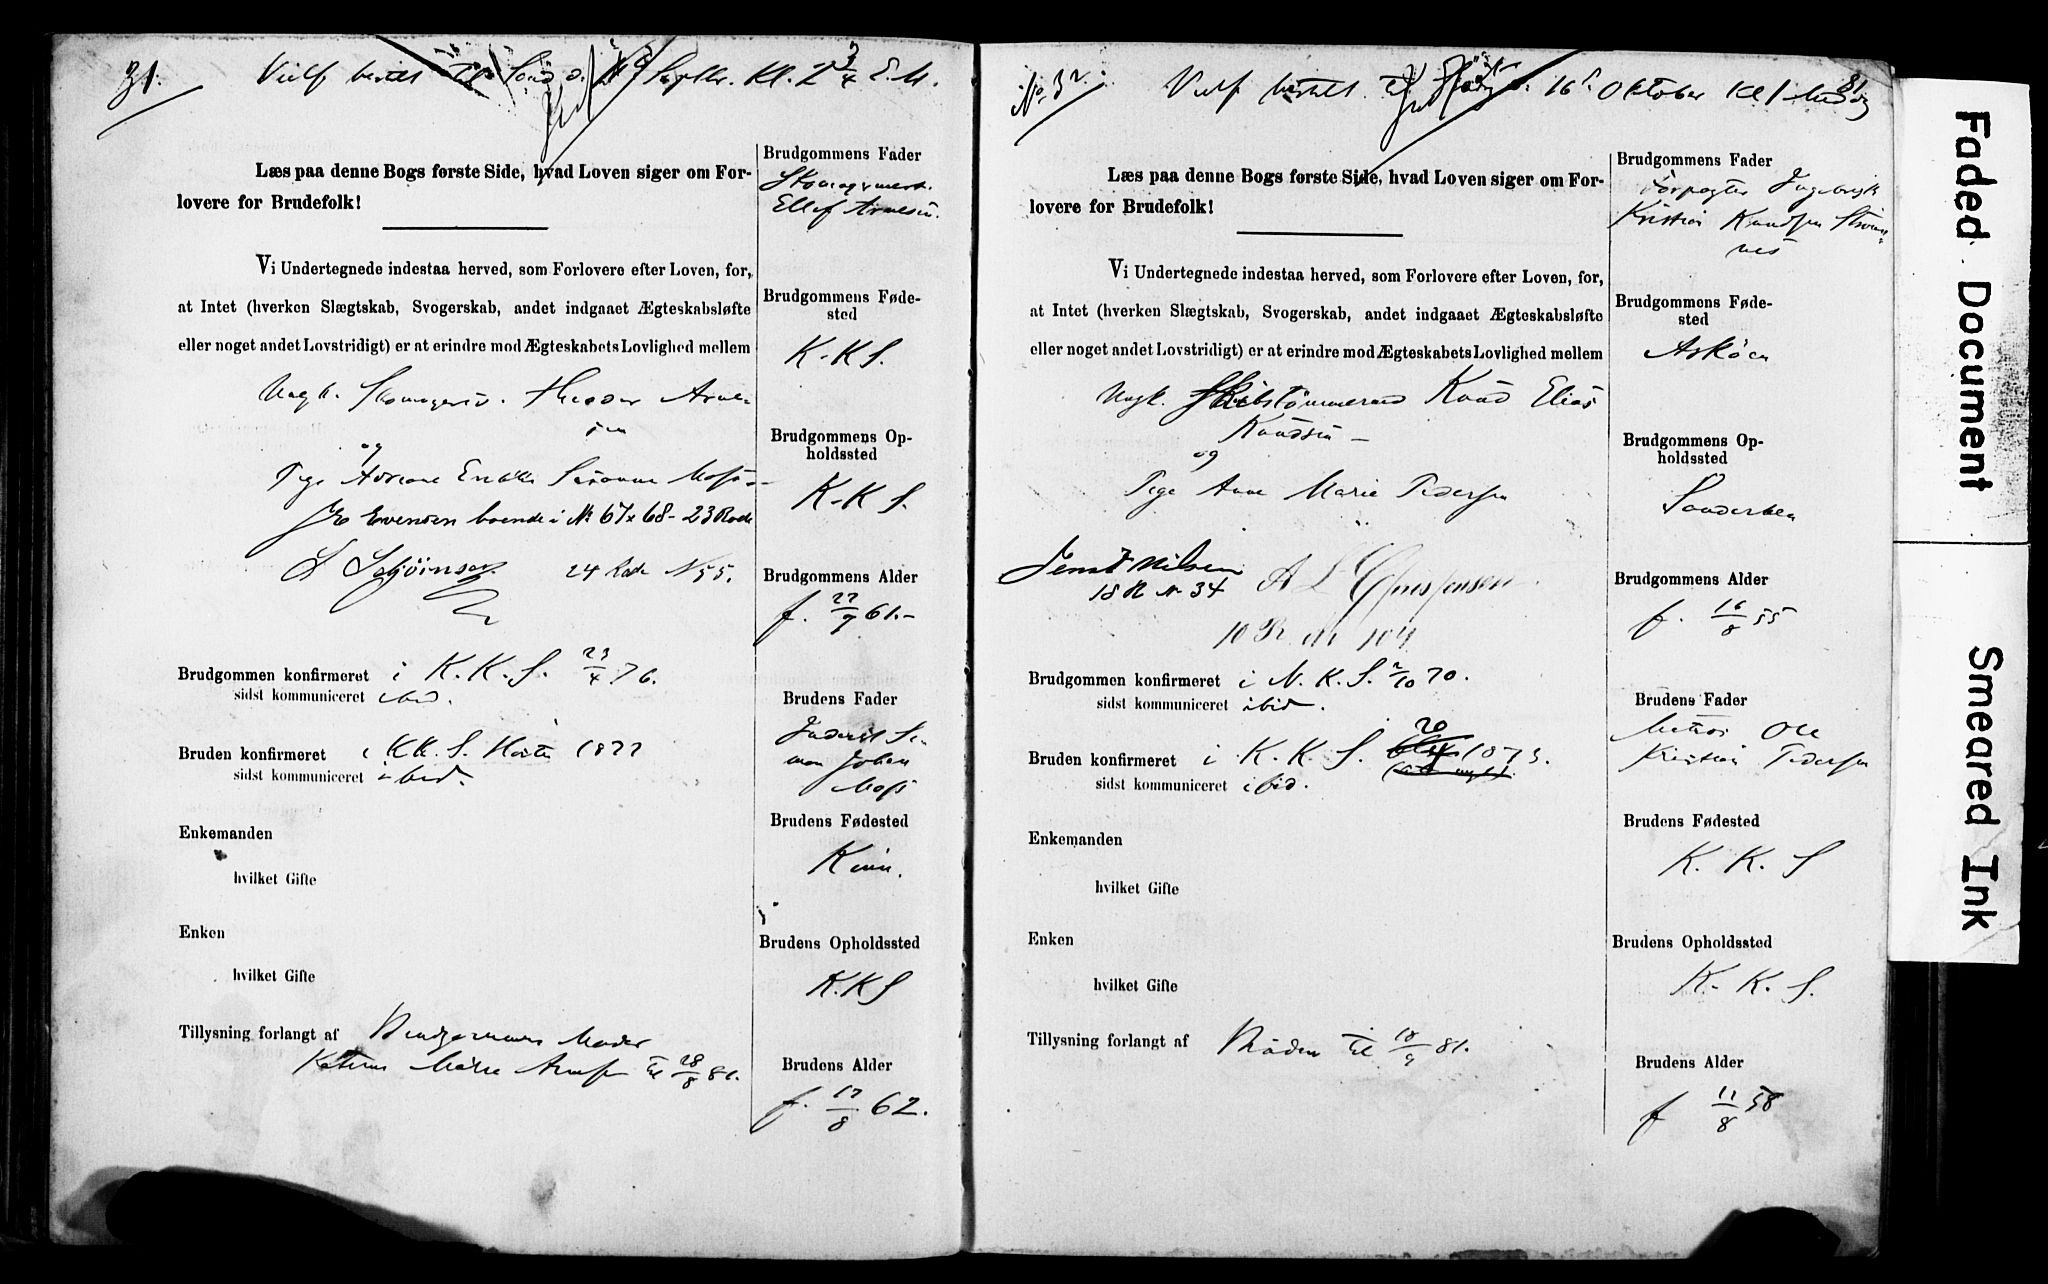 31.
Vielf bestilt Kl. 2 3/4 E.M.
Læs paa denne Bogs første Side, hvad Loven siger om For-
lovere for Brudefolk!
Vi Undertegnede indestaa herved, som Forlovere efter Loven, for,
at Intet (hverken Slægtskab, Svogerskab, andet indgaaet Ægteskabsløfte
eller noget andet Lovstridigt) er at erindre mod Ægteskabets Lovlighed mellem
Ungk. Theodor Arne-
sen
og
Pige Adriane
boende i No 67 x 68 - 23 Rode
24 Rode N 55.
Brudgommen konfirmeret i K.K.S. 23/4 76.
sidst kommuniceret ibid.
Bruden konfirmeret i K.K.S. Høst 1877
sidst kommuniceret ibid.
Enkemanden
hvilket Gifte
Enken
hvilket Gifte
Tillysning forlangt af Brudgommens Moder
til 28/8 81.
Brudgommens Fader
Ellef Arnesen.
Brudgommens Føde-
sted
K.K.S.
Brudgommens Op-
holdssted
K.K.S.
Brudgommens Alder
f. 22/9 61.
Brudens Fader
Johan
Brudens Fødested
Kinn.
Brudens Opholdssted
K.K.S
Brudens Alder
f. 17/8 62.
No. 32.
81
Vielf bestilt 16d Oktober Kl 1 Middag
Læs paa denne Bogs første Side, hvad Loven siger om For-
lovere for Brudefolk!
Vi Undertegnede indestaa herved, som Forlovere efter Loven, for,
at Intet (hverken Slægtskab, Svogerskab, andet indgaaet Ægteskabsløfte
eller noget andet Lovstridigt) er at erindre mod Ægteskabets Lovlighed mellem
Ungk. Skibstømmermd Knud Elias
Knudsen
og
Pige Anne Marie Pedersen
Nilsen A L Christensen
18 R N. 34
10 R. 104
Brudgommen konfirmeret i N.K.S. 2/10 70.
sidst kommuniceret ibid.
Bruden konfirmeret i K.K.S. 20/4 1873.
sidst kommuniceret ibid.
Enkemanden
hvilket Gifte
Enken
hvilket Gifte
Tillysning forlangt af til 18/9 81.
Brudgommens Fader
Forpagter Ingebrigt
Kristian Knudsen
nes
Brudgommens Føde-
sted
Askøen
Brudgommens Op-
holdssted
Brudgommens Alder
f. 16/8 55
Brudens Fader
Matros Ole
Kristian Pedersen
Brudens Fødested
K.K.S
Brudens Opholdssted
K.K.S.
Brudens Alder
f 11/8 58
Faded Document
Smeared Ink